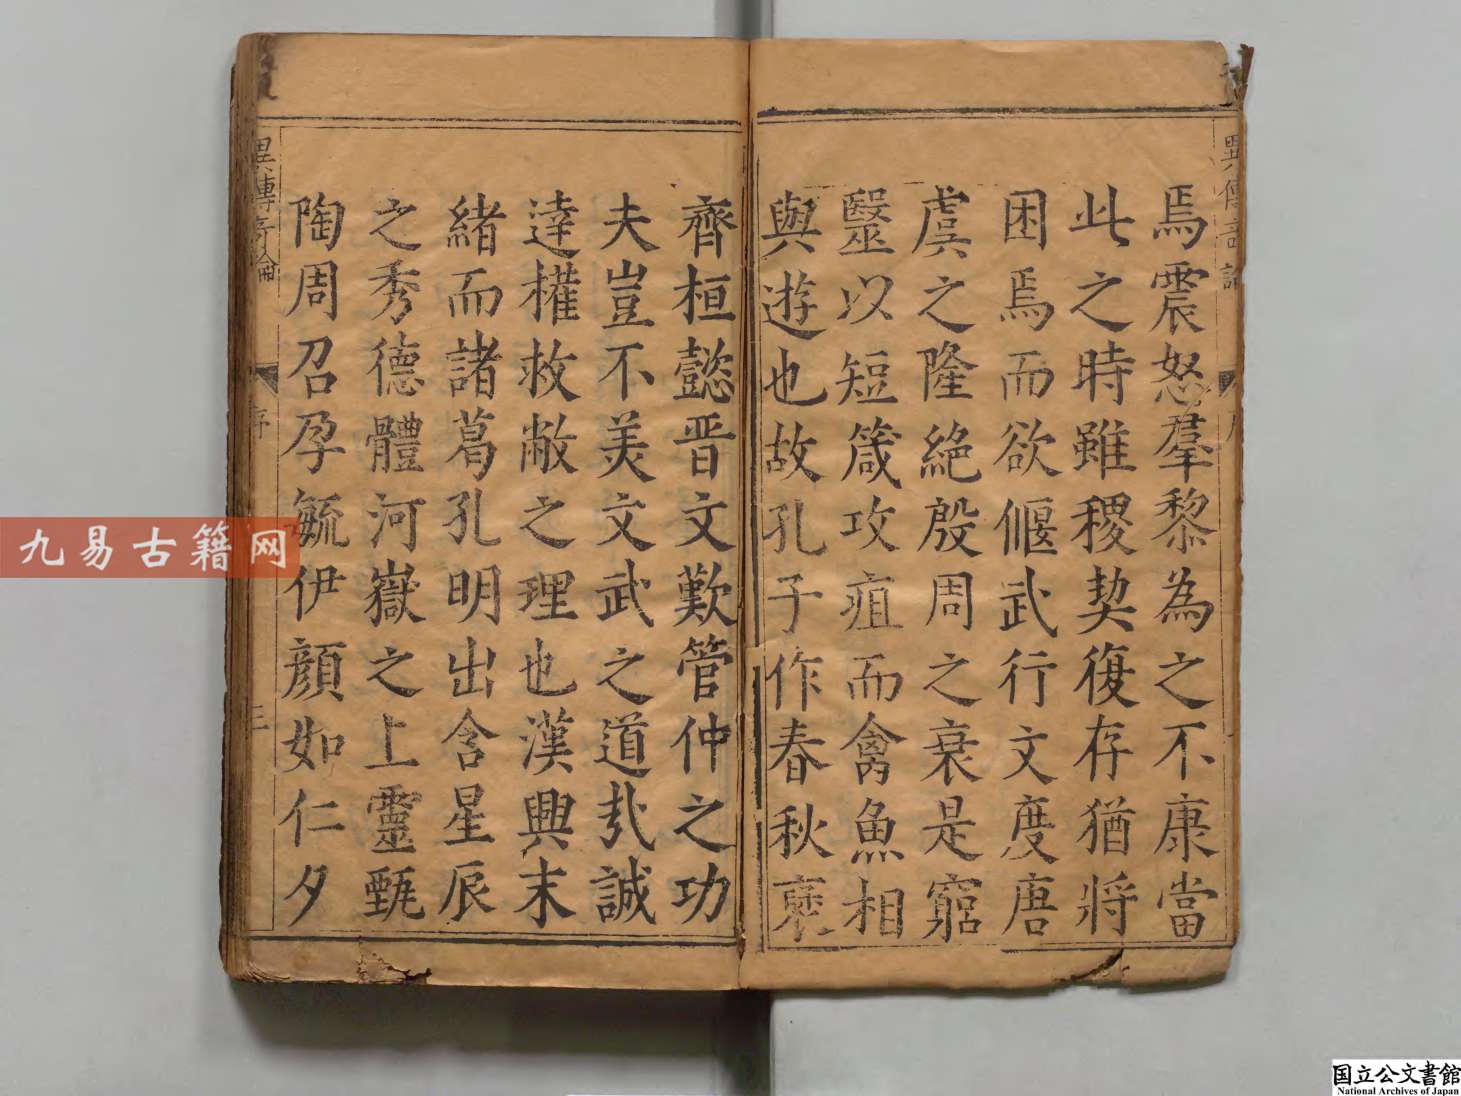 焉震怒羣黎為之不康當
此之時雖稷契復存猶將
困焉而欲偃武行文度唐
虞之隆絶殷周之衰是窮
毉以短箴攻疽而禽魚相
與遊也故孔子作春秋褒
齊桓懿晋文歎管仲之功
夫豈不美文武之道㦲誠
達權救敝之理也漢興末
緒而諸葛孔明出含星辰
之秀德體河嶽之上靈甄
陶周召孕毓伊顔如仁夕
異傳奇論
序
三
九易古籍网
国立公文書館
National Archives of Japan